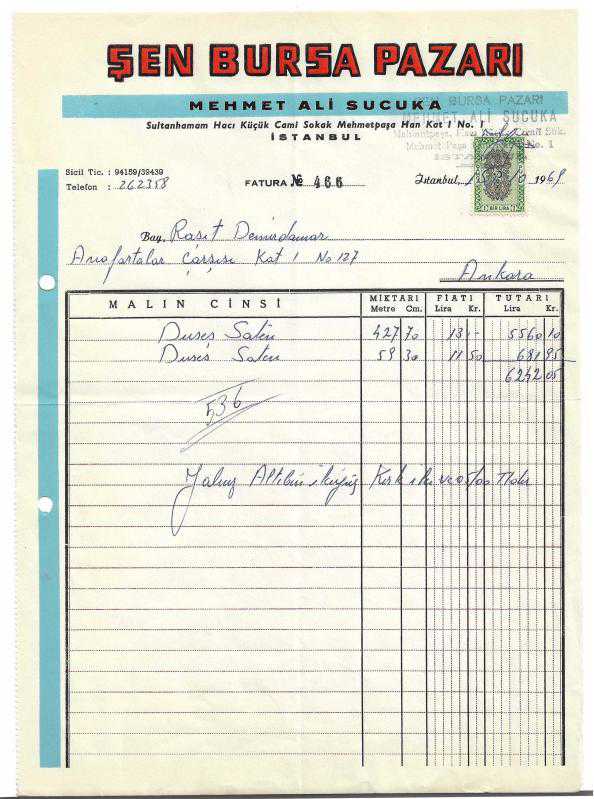 ŞEN BURSA PAZARI
MEHMET ALİ SUCUKA
Sultanhamam Hacı Küçük Cami Sokak Mehmetpaşa Han Kat 1 No. 1
İSTANBUL
ŞEN BURSA PAZARI
MEHMET ALİ SUCUKA
Mehmet Paşa No. 1
İSTANBUL
Sicil Tic. : 94159/39439
Telefon : 262358
FATURA № 466
İstanbul, 10 1969
BİR LİRA
Bay, Raşit Demirdamar
Anafartalar Çarşısı Kat 1 No 127
Ankara
MALIN CİNSİ MİKTARI FİATI TUTARI
Metre Cm. Lira Kr. Lira Kr.
Duşes Saten 427 70 13 - 5560 10
Duşes Saten 59 30 11 50 681 95
6242 05
536
Yalnız Altıbin ikiyüz Kırk iki ve 05/00 TLdır